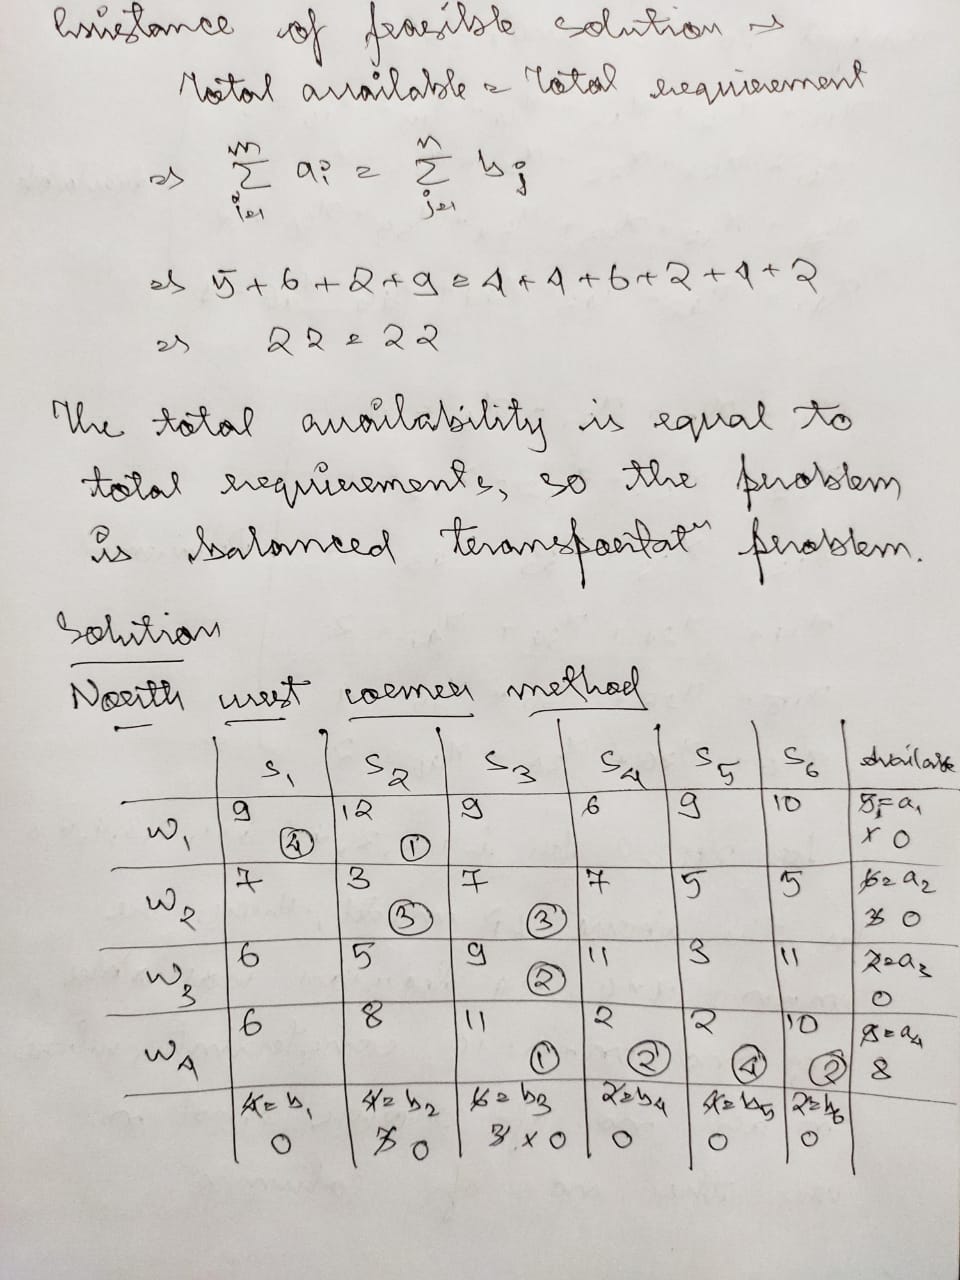 Existance of feasible solution ⇒
Total available = Total requirement
⇒ m∑i=1 ai = n∑j=1 bj
⇒ 5 + 6 + 2 + 9 = 4 + 4 + 6 + 2 + 4 + 2
⇒ 22 = 22
The total availability is equal to
total requirements, so the problem
is balanced transportatⁿ problem.
Solution
North west corner method
S1 S2 S3 S4 S5 S6 Available
W1 9 ④ 12 ① 9 6 9 10 5 = a1
x 0
W2 7 3 ③ 7 ③ 7 5 5 6 = a2
3 0
W3 6 5 9 ② 11 3 11 2 = a3
0
W4 6 8 11 ① 2 ② 2 ④ 10 ② = a4
8
4 = b1 4 = b2 6 = b3 2 = b4 4 = b5 2 = b6
0 3 0 3 x 0 0 0 0